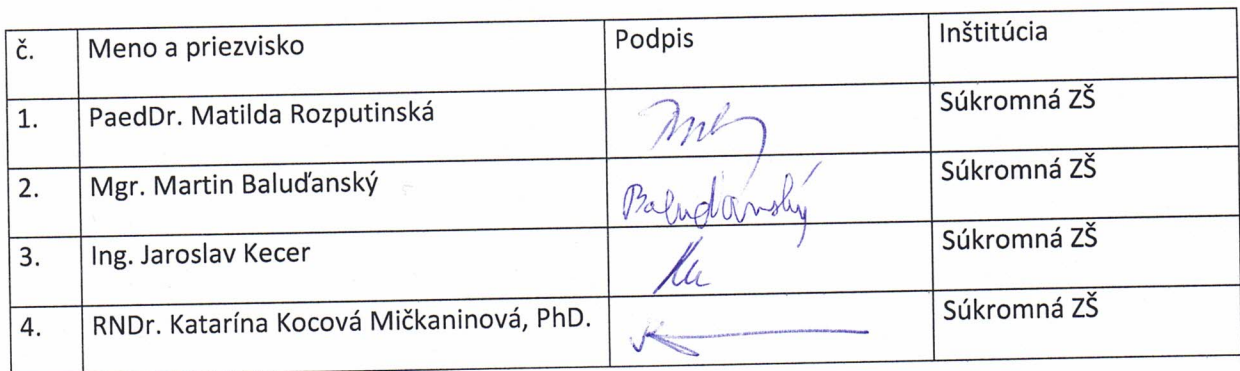 č. Meno a priezvisko Podpis Inštitúcia
1. PaedDr. Matilda Rozputinská Súkromná ZŠ
2. Mgr. Martin Baluďanský Baluďanský Súkromná ZŠ
3. Ing. Jaroslav Kecer Súkromná ZŠ
4. RNDr. Katarína Kocová Mičkaninová, PhD. Súkromná ZŠ